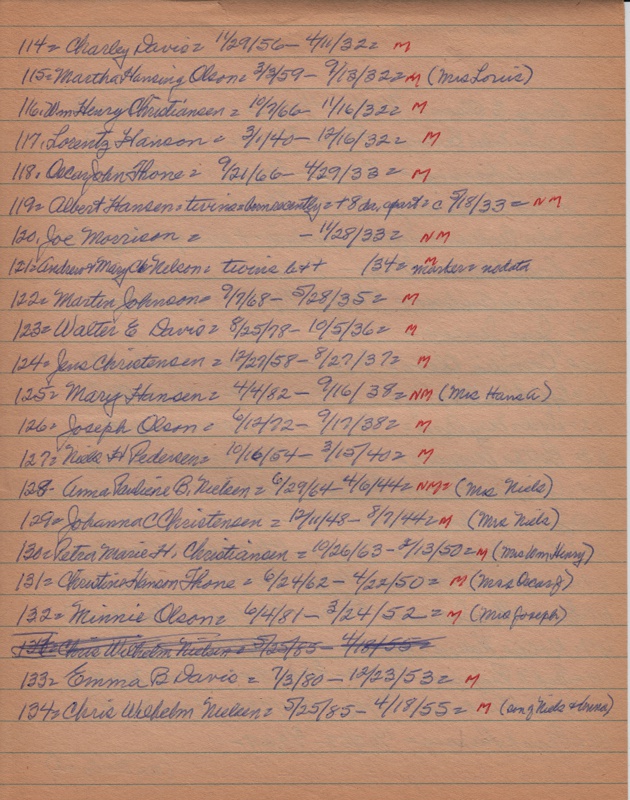 114= Charley Davis= 11/29/56 - 4/11/32= M
115= Martha Hansing Olson= 3/3/59 - 9/13/32= M (Mrs Louis)
116. Wm Henry Christiansen = 10/7/66 - 11/16/32= M
117. Lorentz Hanson = 3/1/40 - 12/16/32= M
118. Oscar John Thone = 9/21/66 - 4/29/33 = M
119= Albert Hansen= twins= born recently= + 8 da. apart = c 5/18/33= NM
120. Joe Morrison = - 11/28/33= NM
121= Andrew & Mary Nelson= twins b++ /34= M marker= no data
122= Martin Johnson= 9/7/68 - 5/28/35= M
123= Walter E Davis= 8/25/78 - 10/5/36= M
124= Jens Christensen = 12/27/58 - 8/27/37= M
125= Mary Hansen= 4/4/82 - 9/16/38= NM (Mrs Hans A)
126= Joseph Olson= 6/12/72 - 9/17/38= M
127= Niels H Pedersen= 10/16/54 - 3/15/40= M
128- Anna Pauliene B. Nielsen = 6/29/64 - 4/6/44= NM= (Mrs Niels)
129= Johanna C Christensen = 12/11/48 - 8/7/44= M (Mrs Nils)
130= Petra Marie H. Christiansen = 10/26/63 - 2/13/50= M (Mrs Wm. Henry)
131= Christine Hanson Thone = 6/24/62 - 4/22/50= M (Mrs Oscar J)
132= Minnie Olson= 6/4/81 - 3/24/52= M (Mrs Joseph)
Chris Wilhelm Nielsen= 5/25/85 - 4/18/55=
133= Emma B Davis = 7/3/80 - 12/23/53= M
134= Chris Wilhelm Nielsen= 5/25/85 - 4/18/55= M (son of Niels & Anna)